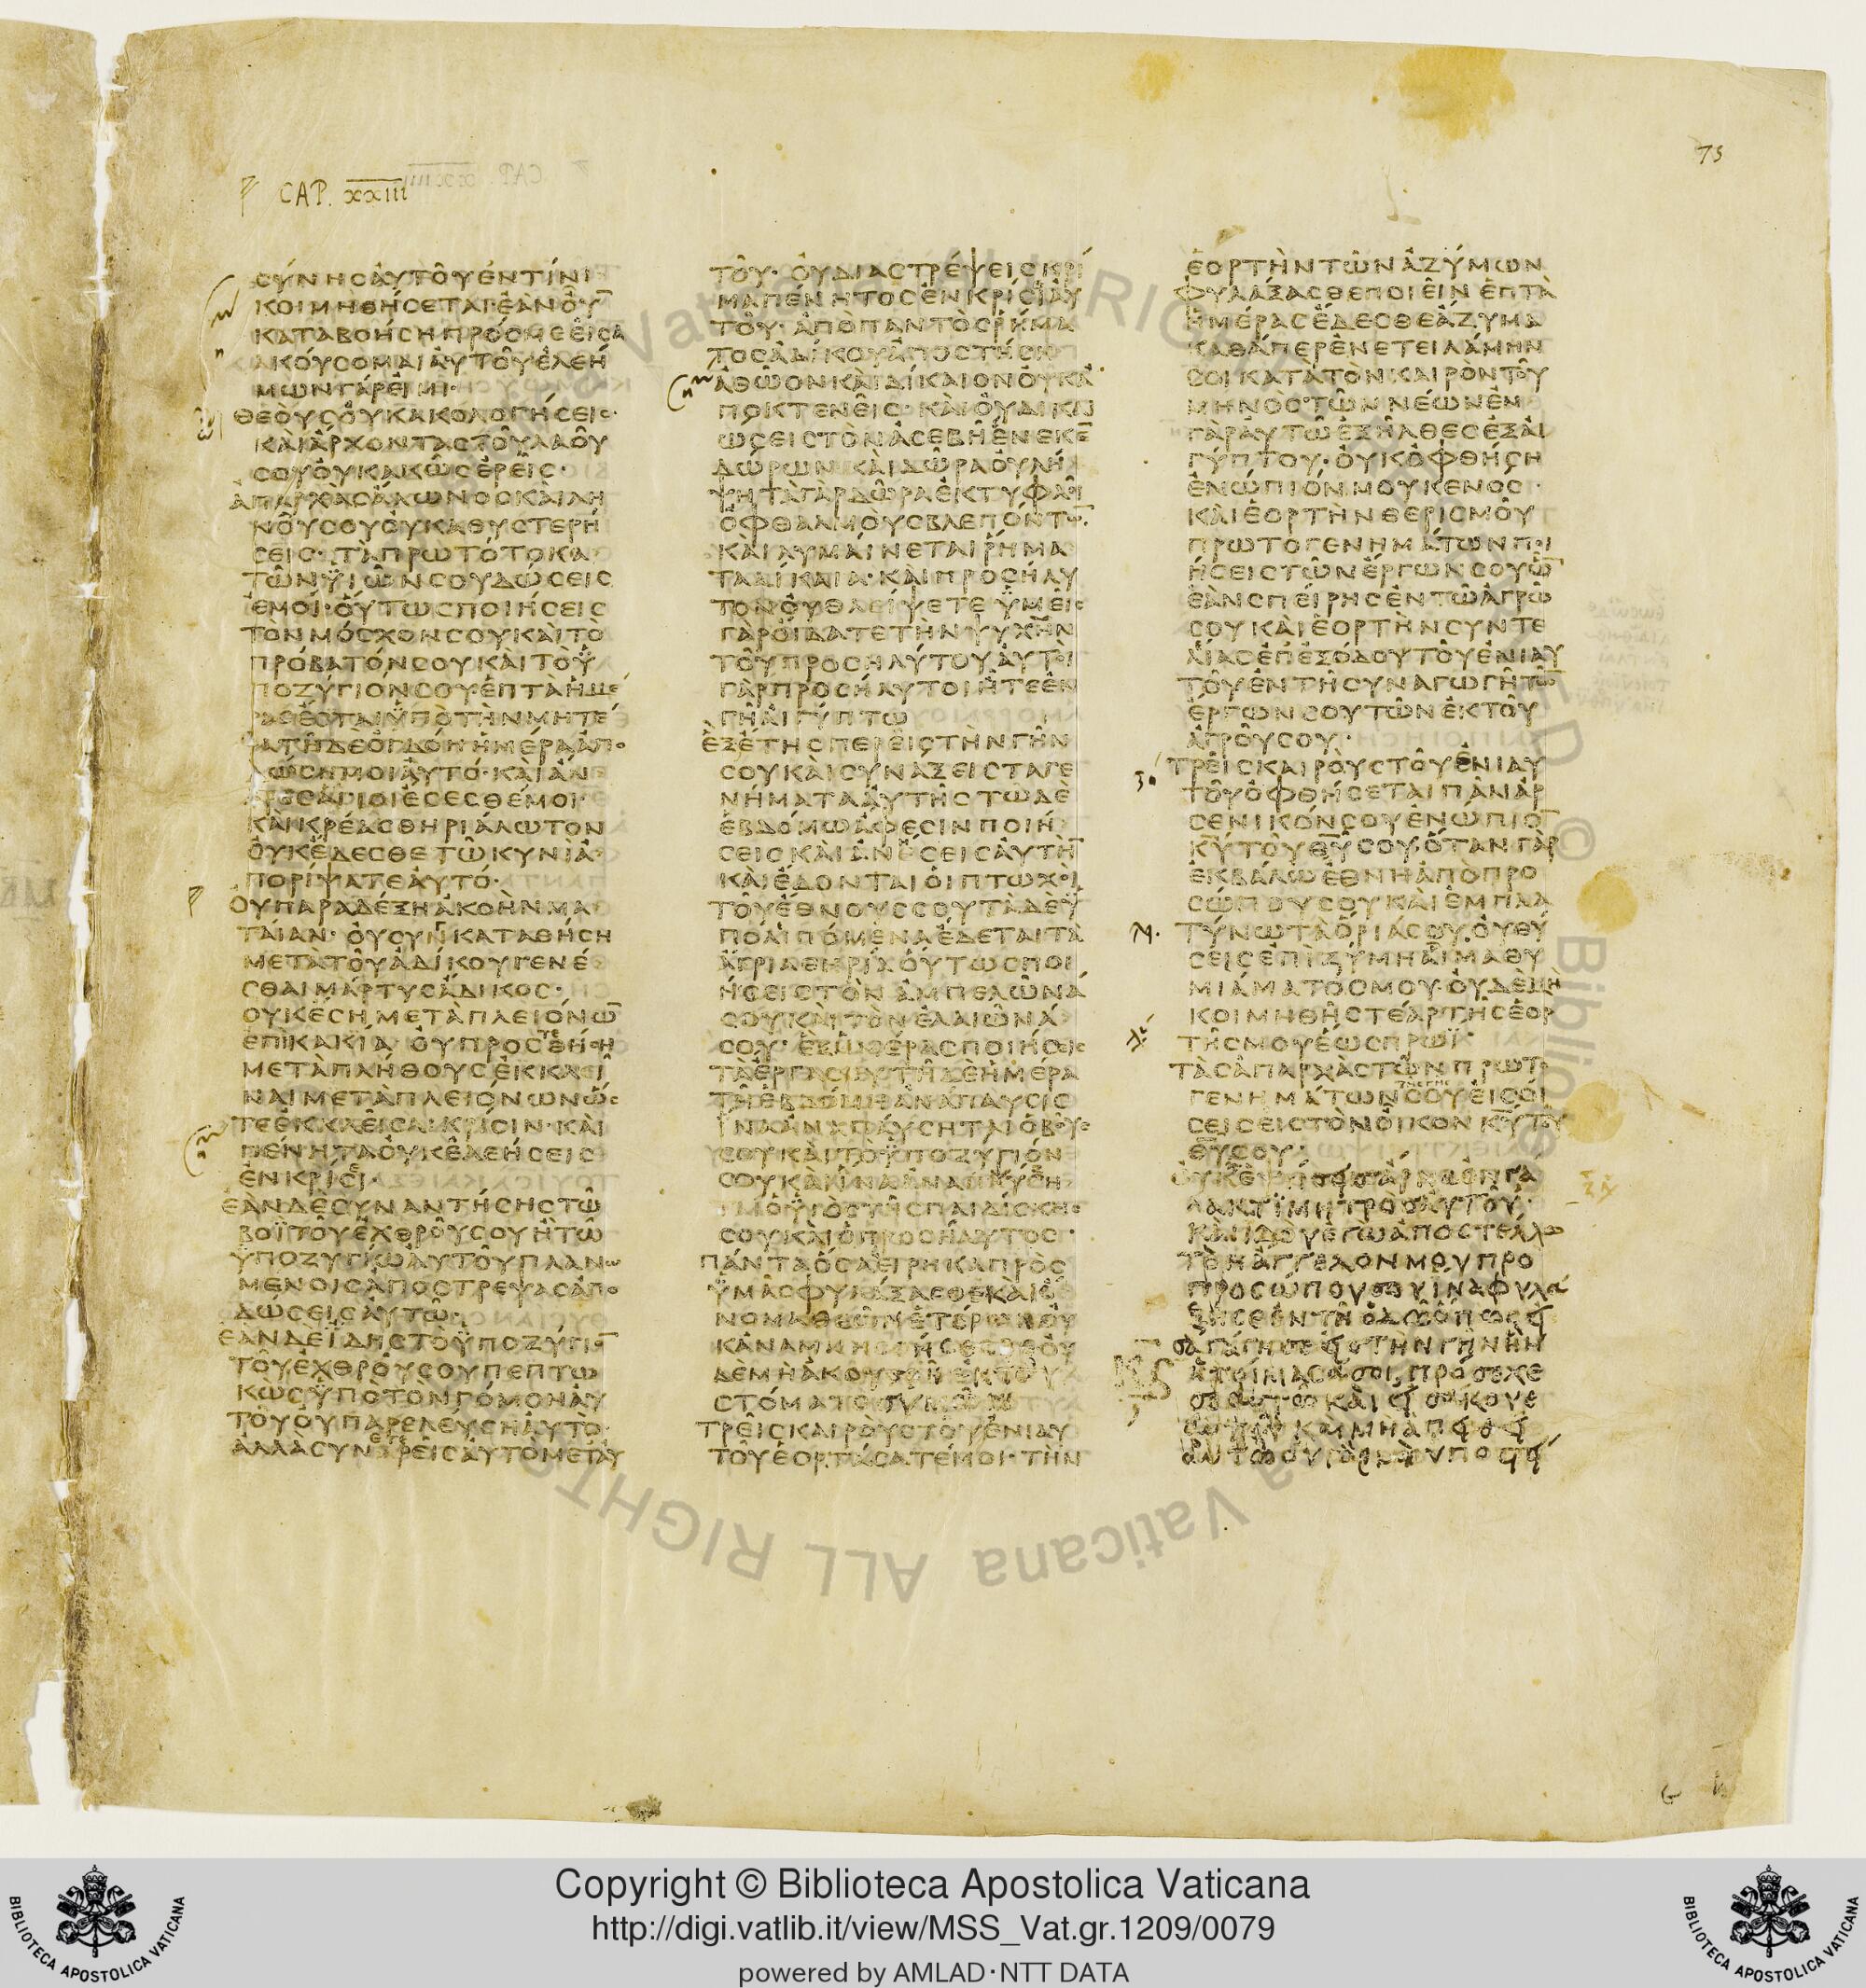 75
CAP. XXIII
ϹΥΝΗϹΑΥΤΟΥΕΝΤΙΝΙ
ΚΟΙΜΗΘΗϹΕΤΑΙ·ΕΑΝΟΥ̅
ΚΑΤΑΒΟΗϹΗΠΡΟϹΜΕΕΙϹΑ
ΑΚΟΥϹΟΜΑΙΑΥΤΟΥΕΛΕΗ
ΜΩΝΓΑΡΕΙΜΙ·
ΘΕΟΥϹΟΥΚΑΚΟΛΟΓΗϹΕΙϹ·
ΚΑΙΑΡΧΟΝΤΑϹΤΟΥΛΑΟΥ
ϹΟΥΟΥΚΑΚΩϹΕΡΕΙϹ·
ΑΠΑΡΧΑϹΑΛΩΝΟϹΚΑΙΛΗ
ΝΟΥϹΟΥΟΥΚΑΘΥϹΤΕΡΗ
ϹΕΙϹ·ΤΑΠΡΩΤΟΤΟΚΑ
ΤΩΝΫΙΩΝϹΟΥΔΩϹΕΙϹ
ΕΜΟΙ·ΟΥΤΩϹΠΟΙΗϹΕΙϹ
ΤΟΝΜΟϹΧΟΝϹΟΥΚΑΙΤΟ
ΠΡΟΒΑΤΟΝϹΟΥΚΑΙΤΟΫ
ΠΟΖΥΓΙΟΝϹΟΥΕΠΤΑΗΜΕ
ΡΑϹΕϹΤΑΙΫΠΟΤΗΝΜΗΤΕ
ΡΑΤΗΔΕΟΓΔΟΗΗΜΕΡΑΑΠΟ
ΔΩϹΗΜΟΙΑΥΤΟ·ΚΑΙΑΝ
ΔΡΕϹΑΓΙΟΙΕϹΕϹΘΕΜΟΙ·
ΚΑΙΚΡΕΑϹΘΗΡΙΑΛΩΤΟΝ
ΟΥΚΕΔΕϹΘΕΤΩΚΥΝΙΑ
ΠΟΡΙΨΑΤΕΑΥΤΟ·
ΟΥΠΑΡΑΔΕΞΗΑΚΟΗΝΜΑ
ΤΑΙΑΝ·ΟΥϹΥΝΚΑΤΑΘΗϹΗ
ΜΕΤΑΤΟΥΑΔΙΚΟΥΓΕΝΕ
ϹΘΑΙΜΑΡΤΥϹΑΔΙΚΟϹ·
ΟΥΚΕϹΗΜΕΤΑΠΛΕΙΟΝΩ̅
ΕΠΙΚΑΚΙΑ·ΟΥΠΡΟϹΤΕΘΗϹΗ
ΜΕΤΑΠΛΗΘΟΥϹΕΚΚΛΕΙ
ΝΑΙΜΕΤΑΠΛΕΙΟΝΩΝΩϹ
ΤΕΕΚΚΛΕΙϹΑΙΚΡΙϹΙΝ·ΚΑΙ
ΠΕΝΗΤΑΟΥΚΕΛΕΗϹΕΙϹ
ΕΝΚΡΙϹΕΙ·
ΕΑΝΔΕϹΥΝΑΝΤΗϹΗϹΤΩ
ΒΟΪΤΟΥΕΧΘΡΟΥϹΟΥΗΤΩ
ΫΠΟΖΥΓΙΩΑΥΤΟΥΠΛΑΝΩ
ΜΕΝΟΙϹΑΠΟϹΤΡΕΨΑϹΑΠΟ
ΔΩϹΕΙϹΑΥΤΩ·
ΕΑΝΔΕΪΔΗϹΤΟΫΠΟΖΥΓΙΟ̅
ΤΟΥΕΧΘΡΟΥϹΟΥΠΕΠΤΩ
ΚΩϹΫΠΟΤΟΝΓΟΜΟΝΑΥ
ΤΟΥΟΥΠΑΡΕΛΕΥϹΗΑΥΤΟ·
ΑΛΛΑϹΥΝΕΓΕΡΕΙϹΑΥΤΟΜΕΤΑΥ
ΤΟΥ·ΟΥΔΙΑϹΤΡΕΨΕΙϹΚΡΙ
ΜΑΠΕΝΗΤΟϹΕΝΚΡΙϹΙΑΥ
ΤΟΥ·ΑΠΟΠΑΝΤΟϹΡΗΜΑ
ΤΟϹΑΔΙΚΟΥΑΠΟϹΤΗϹΗ·
ΑΘΩΟΝΚΑΙΔΙΚΑΙΟΝΟΥΚΑ
ΠΟΚΤΕΝΕΙϹ·ΚΑΙΟΥΔΙΚΑΙ
ΩϹΕΙϹΤΟΝΑϹΕΒΗΕΝΕΚΕ̅
ΔΩΡΩΝ·ΚΑΙΔΩΡΑΟΥΛΗ
ΨΗΤΑΓΑΡΔΩΡΑΕΚΤΥΦΛΟΙ
ΟΦΘΑΛΜΟΥϹΒΛΕΠΟΝΤΩ̅
ΚΑΙΛΥΜΑΙΝΕΤΑΙΡΗΜΑ
ΤΑΔΙΚΑΙΑ·ΚΑΙΠΡΟϹΗΛΥ
ΤΟΝΟΥΘΛΕΙΨΕΤΕΫΜΕΙϹ
ΓΑΡΟΙΔΑΤΕΤΗΝΨΥΧΗΝ
ΤΟΥΠΡΟϹΗΛΥΤΟΥΑΥΤΟΙ
ΓΑΡΠΡΟϹΗΛΥΤΟΙΗΤΕΕΝ
ΓΗΑΙΓΥΠΤΩ
ΕΞΕΤΗϹΠΕΡΕΙϹΤΗΝΓΗΝ
ϹΟΥΚΑΙϹΥΝΑΞΕΙϹΤΑΓΕ
ΝΗΜΑΤΑΑΥΤΗϹΤΩΔΕ
ΕΒΔΟΜΩΑΦΕϹΙΝΠΟΙΗ
ϹΕΙϹΚΑΙΑΝΗϹΕΙϹΑΥΤΗ̅
ΚΑΙΕΔΟΝΤΑΙΟΙΠΤΩΧΟΙ
ΤΟΥΕΘΝΟΥϹϹΟΥΤΑΔΕΫ
ΠΟΛΙΠΟΜΕΝΑΕΔΕΤΑΙΤΑ
ΑΓΡΙΑΘΗΡΙΑ·ΟΥΤΩϹΠΟΙ
ΗϹΕΙϹΤΟΝΑΜΠΕΛΩΝΑ
ϹΟΥΚΑΙΤΟΝΕΛΑΙΩΝΑ
ϹΟΥ·ΕΞΗΜΕΡΑϹΠΟΙΗϹΕΙϹ
ΤΑΕΡΓΑϹΟΥΤΗΔΕΗΜΕΡΑ
ΤΗΕΒΔΟΜΗΑΝΑΠΑΥϹΙϹ
ΪΝΑΑΝΑΠΑΥϹΗΤΑΙΟΒΟΥϹ
ϹΟΥΚΑΙΤΟΫΠΟΖΥΓΙΟΝ
ϹΟΥΚΑΙΪΝΑΑΝΑΨΥΞΗ
ΟΫΙΟϹΤΗϹΠΑΙΔΙϹΚΗϹ
ϹΟΥΚΑΙΟΠΡΟϹΗΛΥΤΟϹ·
ΠΑΝΤΑΟϹΑΕΙΡΗΚΑΠΡΟϹ
ΫΜΑϹΦΥΛΑΞΑϹΘΕΚΑΙΟ
ΝΟΜΑΘΕΩΝΕΤΕΡΩΝΟΥ
ΚΑΝΑΜΝΗϹΘΗϹΕϹΘΕΟΥ
ΔΕΜΗΑΚΟΥϹΘΗΕΚΤΟΥ
ϹΤΟΜΑΤΟϹΫΜΩΝ
ΤΡΕΙϹΚΑΙΡΟΥϹΤΟΥΕΝΙΑΥ
ΤΟΥΕΟΡΤΑϹΑΤΕΜΟΙ·ΤΗΝ
ΕΟΡΤΗΝΤΩΝΑΖΥΜΩΝ
ΦΥΛΑΞΑϹΘΕΠΟΙΕΙΝΕΠΤΑ
ΗΜΕΡΑϹΕΔΕϹΘΕΑΖΥΜΑ
ΚΑΘΑΠΕΡΕΝΕΤΕΙΛΑΜΗΝ
ϹΟΙΚΑΤΑΤΟΝΚΑΙΡΟΝΤΟΥ
ΜΗΝΟϹΤΩΝΝΕΩΝΕΝ
ΓΑΡΑΥΤΩΕΞΗΛΘΕϹΕΞΑΙ
ΓΥΠΤΟΥ·ΟΥΚΟΦΘΗϹΗ
ΕΝΩΠΙΟΝΜΟΥΚΕΝΟϹ·
ΚΑΙΕΟΡΤΗΝΘΕΡΙϹΜΟΥ
ΠΡΩΤΟΓΕΝΗΜΑΤΩΝΠΟΙ
ΗϹΕΙϹΤΩΝΕΡΓΩΝϹΟΥΩ̅
ΕΑΝϹΠΕΙΡΗϹΕΝΤΩΑΓΡΩ
ϹΟΥΚΑΙΕΟΡΤΗΝϹΥΝΤΕ
ΛΙΑϹΕΠΕΞΟΔΟΥΤΟΥΕΝΙΑΥ
ΤΟΥΕΝΤΗϹΥΝΑΓΩΓΗΤΩ̅
ΕΡΓΩΝϹΟΥΤΩΝΕΚΤΟΥ
ΑΓΡΟΥϹΟΥ·
ΤΡΕΙϹΚΑΙΡΟΥϹΤΟΥΕΝΙΑΥ
ΤΟΥΟΦΘΗϹΕΤΑΙΠΑΝΑΡ
ϹΕΝΙΚΟΝϹΟΥΕΝΩΠΙΟ̅
Κ̅Υ̅ΤΟΥΘ̅Υ̅ϹΟΥ·ΟΤΑΝΓΑΡ
ΕΚΒΑΛΩΕΘΝΗΑΠΟΠΡΟ
ϹΩΠΟΥϹΟΥΚΑΙΕΜΠΛΑ
ΤΥΝΩΤΑΟΡΙΑϹΟΥ·ΟΥΘΥ
ϹΕΙϹΕΠΙΖΥΜΗΑΙΜΑΘΥ
ΜΙΑΜΑΤΟϹΜΟΥ·ΟΥΔΕΜΗ
ΚΟΙΜΗΘΗϹΤΕΑΡΤΗϹΕΟΡ
ΤΗϹΜΟΥΕΩϹΠΡΩΪ·
ΤΑϹΑΠΑΡΧΑϹΤΩΝΠΡΩΤΟ
ΓΕΝΗΜΑΤΩΝΤΗϹΓΗϹϹΟΥΕΙϹΟΙ
ϹΕΙϹΕΙϹΤΟΝΟΙΚΟΝΚ̅Υ̅ΤΟΥ
Θ̅Υ̅ϹΟΥ·
ΟΥΧΕΨΗϹΕΙϹΑΡΝΑΕΝΓΑ
ΛΑΚΤΙΜΗΤΡΟϹΑΥΤΟΥ·
ΚΑΙΙΔΟΥΕΓΩΑΠΟϹΤΕΛΛΩ
ΤΟΝΑΓΓΕΛΟΝΜΟΥΠΡΟ
ΠΡΟϹΩΠΟΥϹΟΥΙΝΑΦΥΛΑ
ΞΗϹΕΕΝΤΗΟΔΩΟΠΩϹΕΙ
ϹΑΓΑΓΗϹΕΕΙϹΤΗΝΓΗΝΗΝ
ΗΤΟΙΜΑϹΑϹΟΙ·ΠΡΟϹΕΧΕ
ϹΕΑΥΤΩΚΑΙΕΙϹΑΚΟΥΕ
ΑΥΤΟΥΚΑΙΜΗΑΠΕΙΘΕΙ
ΑΥΤΩΟΥΓΑΡΜΗΥΠΟϹΤΕΙ
Copyright © Biblioteca Apostolica Vaticana
http://digi.vatlib.it/view/MSS_Vat.gr.1209/0079
powered by AMLAD·NTT DATA
BIBLIOTECA APOSTOLICA VATICANA
BIBLIOTECA APOSTOLICA VATICANA